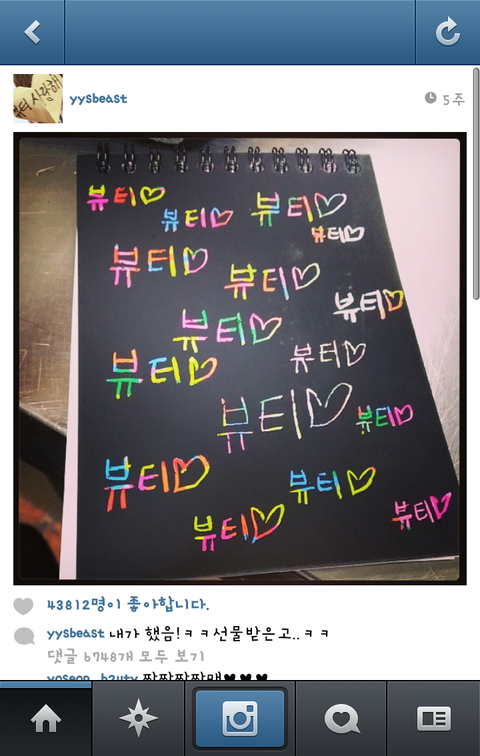 뷰티 사랑해
yysbeast
5주
뷰티♡
뷰티♡
뷰티♡
뷰티♡
뷰티♡
뷰티♡
뷰티♡
뷰티♡
뷰티♡
뷰티♡
뷰티♡
뷰티♡
뷰티♡
뷰티♡
뷰티♡
뷰티♥
43812명이 좋아합니다.
yysbeast 내가 했음!ㅋㅋ선물받은고..ㅋㅋ
댓글 6748개 모두 보기
yoseop_b2uty 짝짝짝짝매♥♥♥